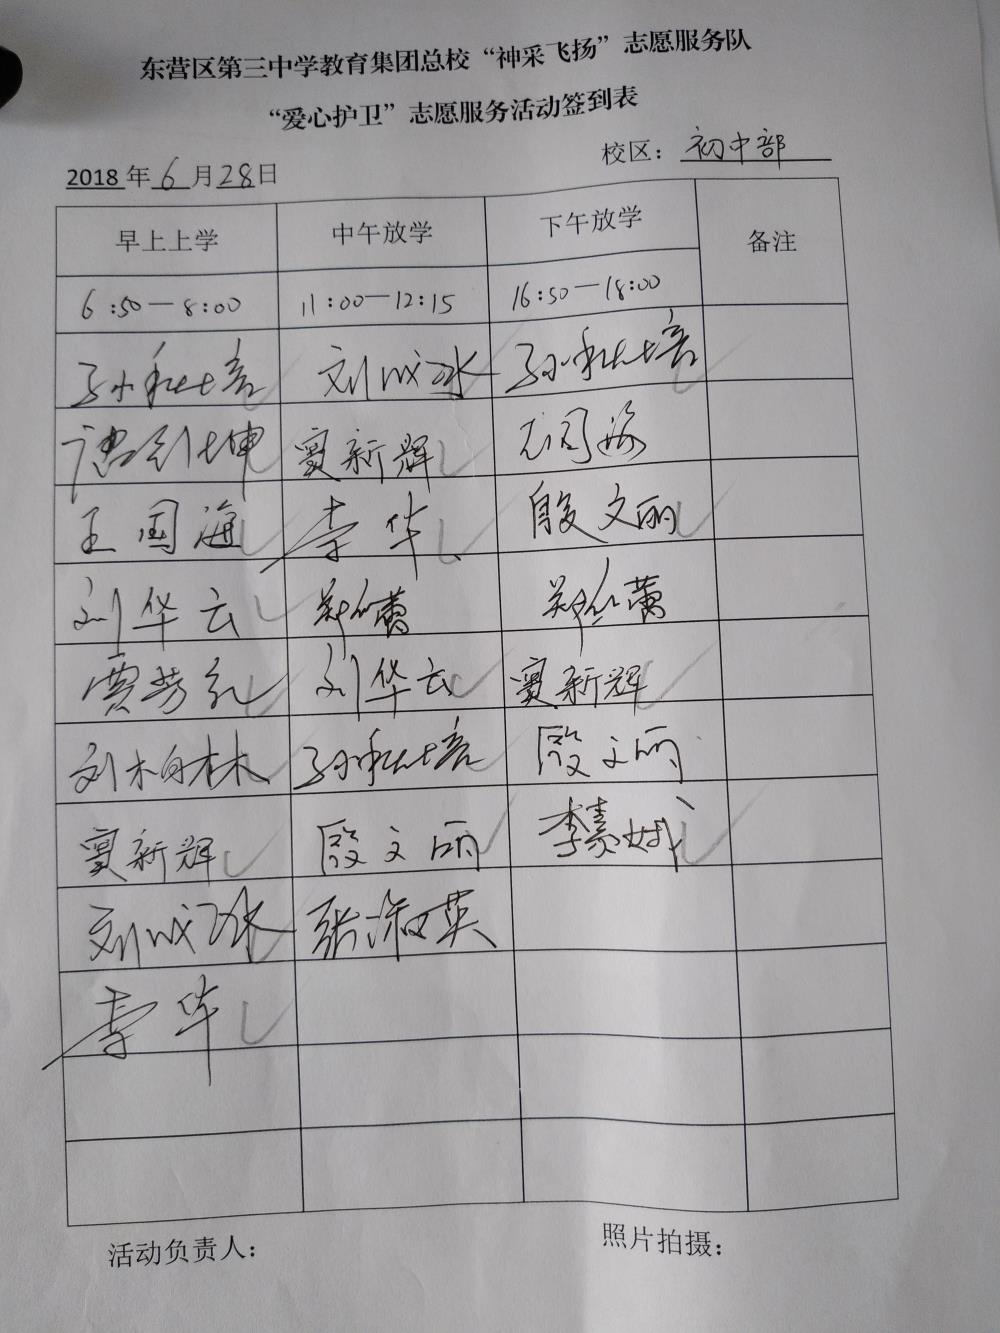 东营区第三中学教育集团总校“神采飞扬”志愿服务队
“爱心护卫”志愿服务活动签到表
校区：初中部
2018年6月28日
早上上学 中午放学 下午放学 备注
6:50—8:00 11:00—12:15 16:50—18:00
孙秋培 刘成冰 孙秋培
窦新辉
王国海 李华 殷文丽
刘华云 郑蕾 郑蕾
贾芳 刘华云 窦新辉
刘柏林 孙秋培 殷文丽
窦新辉 殷文丽 李素娥
刘成冰 张淑英
李华
活动负责人： 照片拍摄：